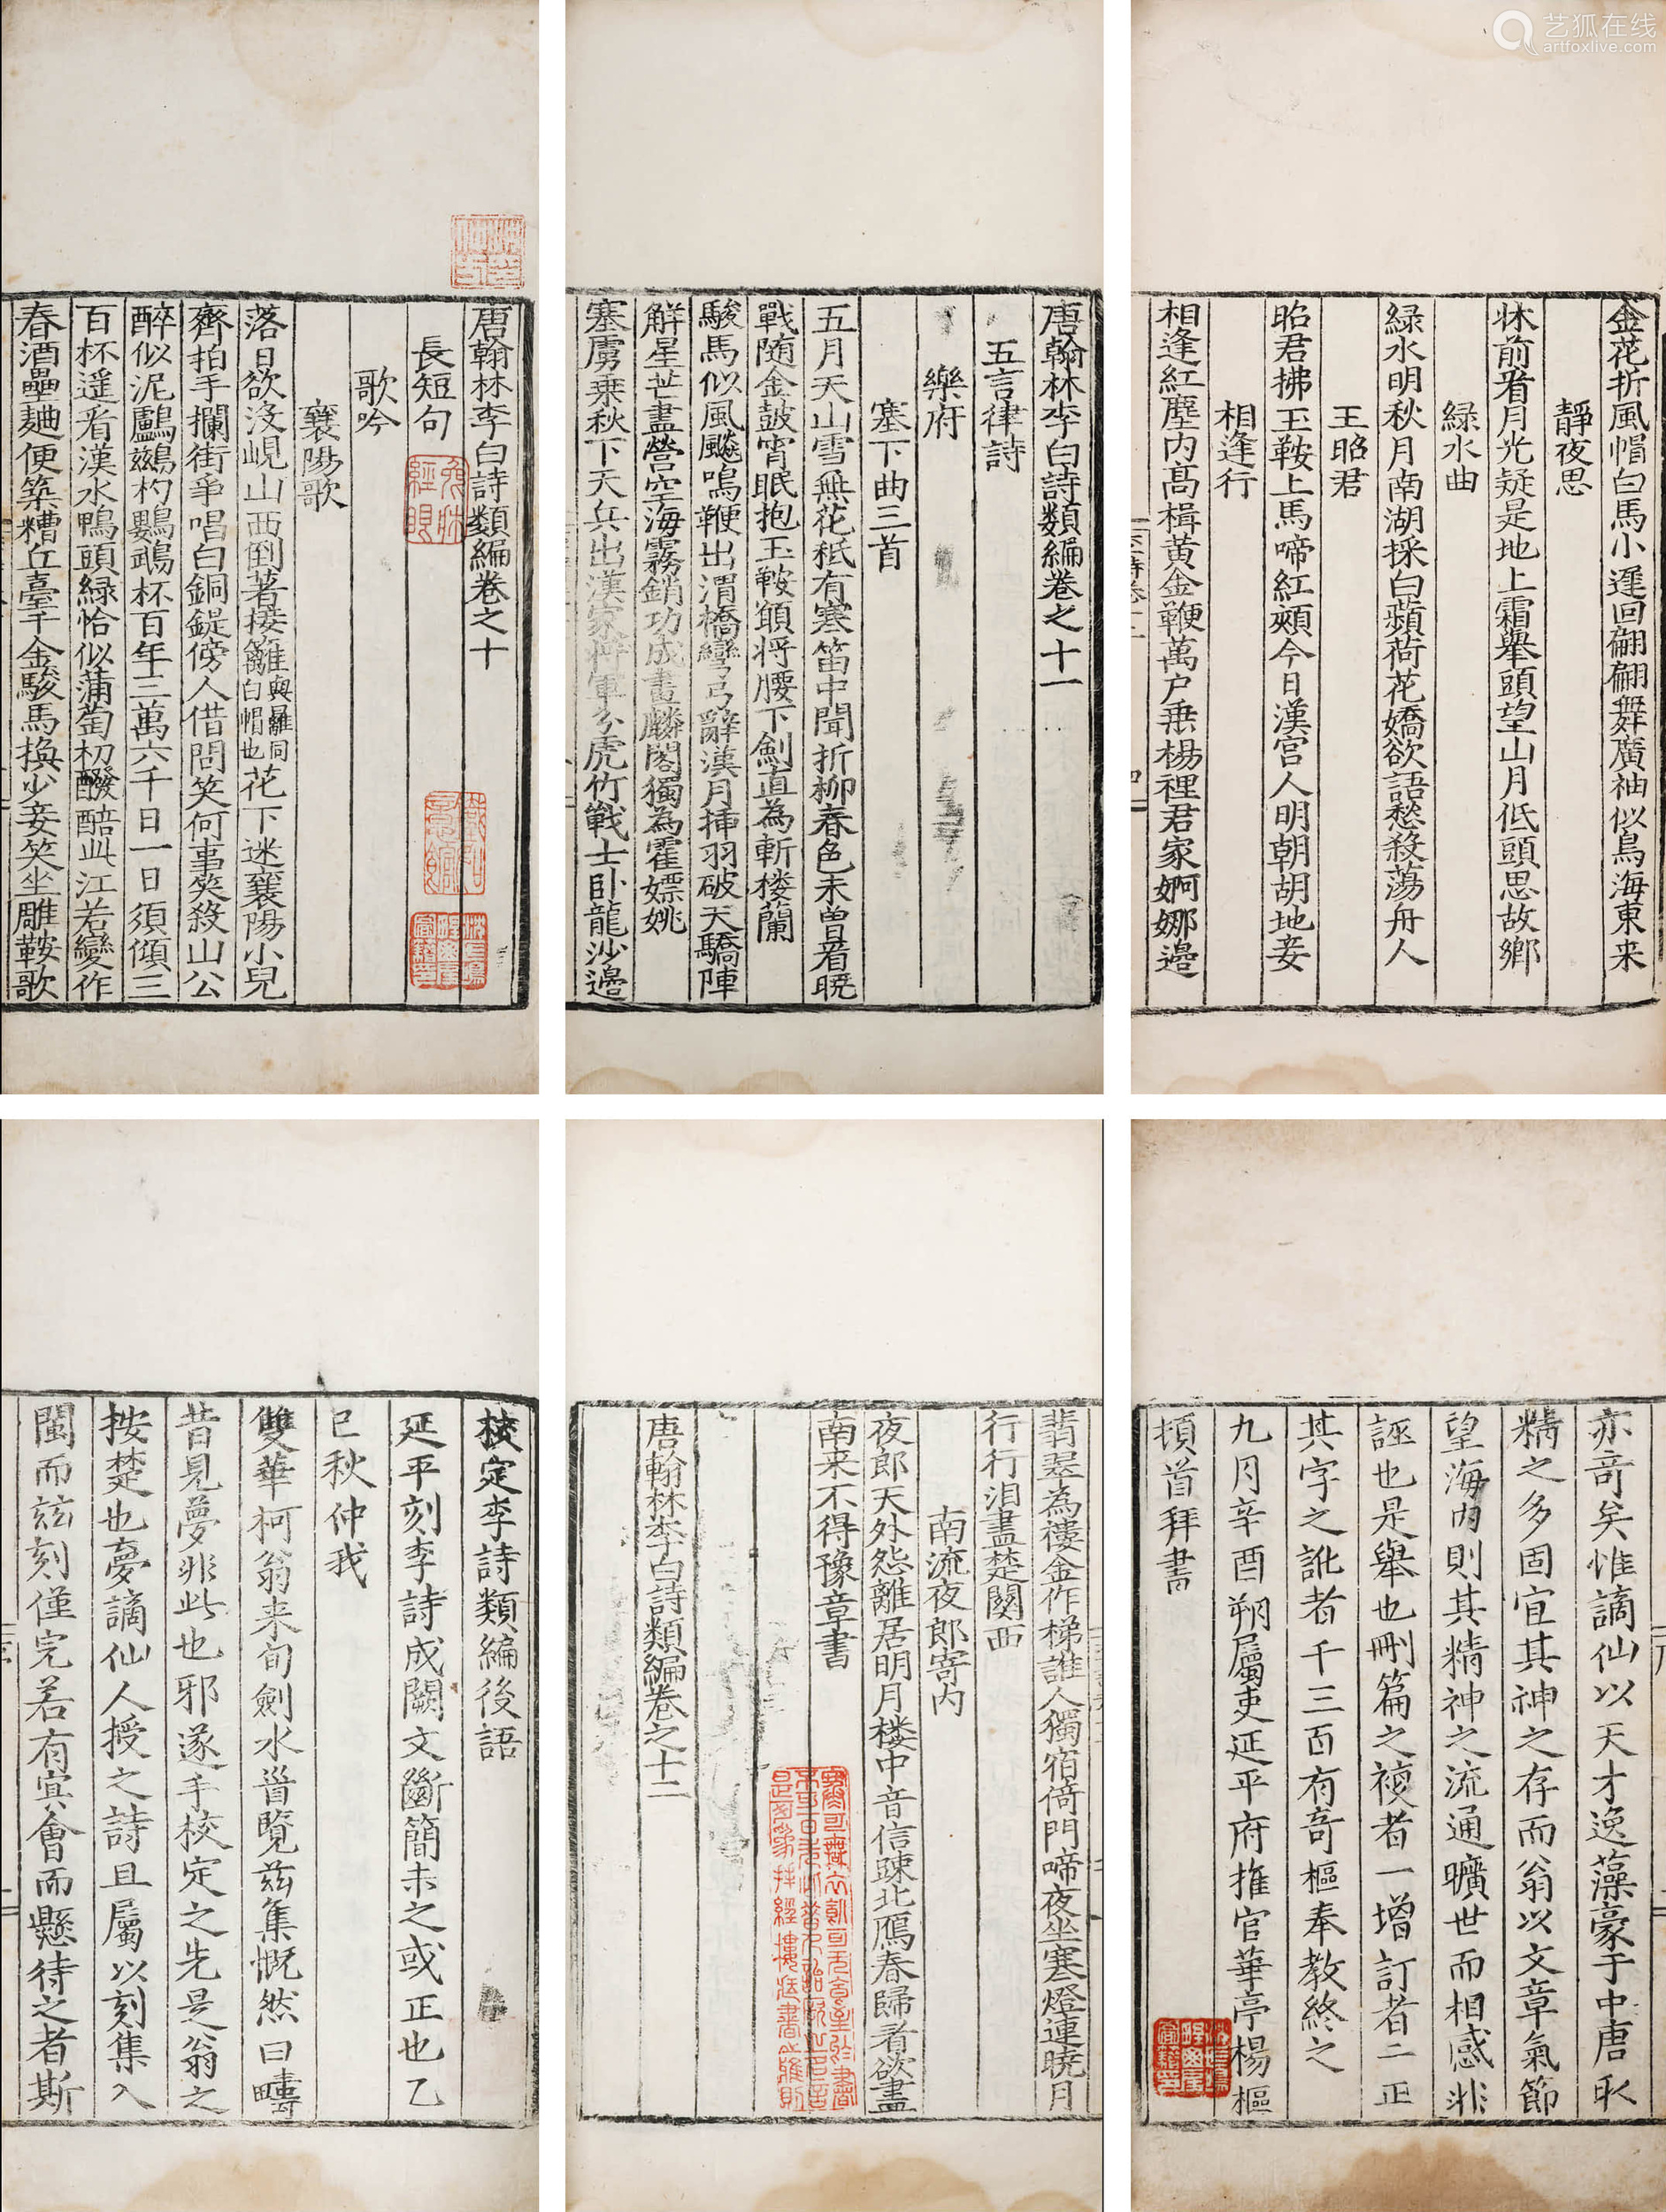 唐翰林李白詩類編卷之十
長短句
歌吟
襄陽歌
落日欲沒峴山西倒著接䍦與羅同白帽也花下迷襄陽小兒
齊拍手攔街爭唱白銅鍉傍人借問笑何事笑殺山公
醉似泥鸕鷀杓鸚鵡杯百年三萬六千日一日須傾三
百杯遥看漢水鴨頭緑恰似蒲萄初醱醅此江若變作
春酒壘麯便築糟丘臺千金駿馬換少妾笑坐雕鞍歌
唐翰林李白詩類編卷之十一
五言律詩
樂府
塞下曲三首
五月天山雪無花秖有寒笛中聞折柳春色未曾看曉
戰随金鼓宵眠抱玉鞍願将腰下劍直為斬楼蘭
駿馬似風飈鳴鞭出渭橋彎弓辭漢月揷羽破天驕陣
解星芒盡營空海霧銷功成畫麟閣獨為霍嫖姚
塞虜乗秋下天兵出漢家将軍分虎竹戰士卧龍沙邉
金花折風帽白馬小遲回翩翩舞廣袖似鳥海東来
靜夜思
牀前看月光疑是地上霜舉頭望山月低頭思故鄉
緑水曲
緑水明秋月南湖採白蘋荷花嬌欲語愁殺蕩舟人
王昭君
昭君拂玉鞍上馬啼紅頰今日漢宫人明朝胡地妾
相逢行
相逢紅塵内髙楫黄金鞭萬户垂楊裡君家婀娜邉
校定李詩類編後語
延平刻李詩成闕文斷簡未之或正也乙
巳秋仲我
雙華柯翁来旬劍水甾覽兹集慨然曰疇
昔見夢非此也邪遂手校定之先是翁之
按楚也夢謫仙人授之詩且屬以刻集入
閩而兹刻僅完若有冥會而懸待之者斯
翡翠為樓金作梯誰人獨宿倚門啼夜坐寒燈連曉月
行行泪盡楚關西
南流夜郎寄内
夜郎天外怨離居明月楼中音信踈北鴈春歸看欲盡
南来不得豫章書
唐翰林李白詩類編卷之十二
亦奇矣惟謫仙以天才逸藻豪于中唐取
精之多固宜其神之存而翁以文章氣節
望海内則其精神之流通曠世而相感非
誣也是舉也刪篇之複者一增訂者二正
其字之訛者千三百有奇樞奉教終之
九月辛酉朔屬吏延平府推官華亭楊樞
頓首拜書
艺狐在线
artfoxlive.com